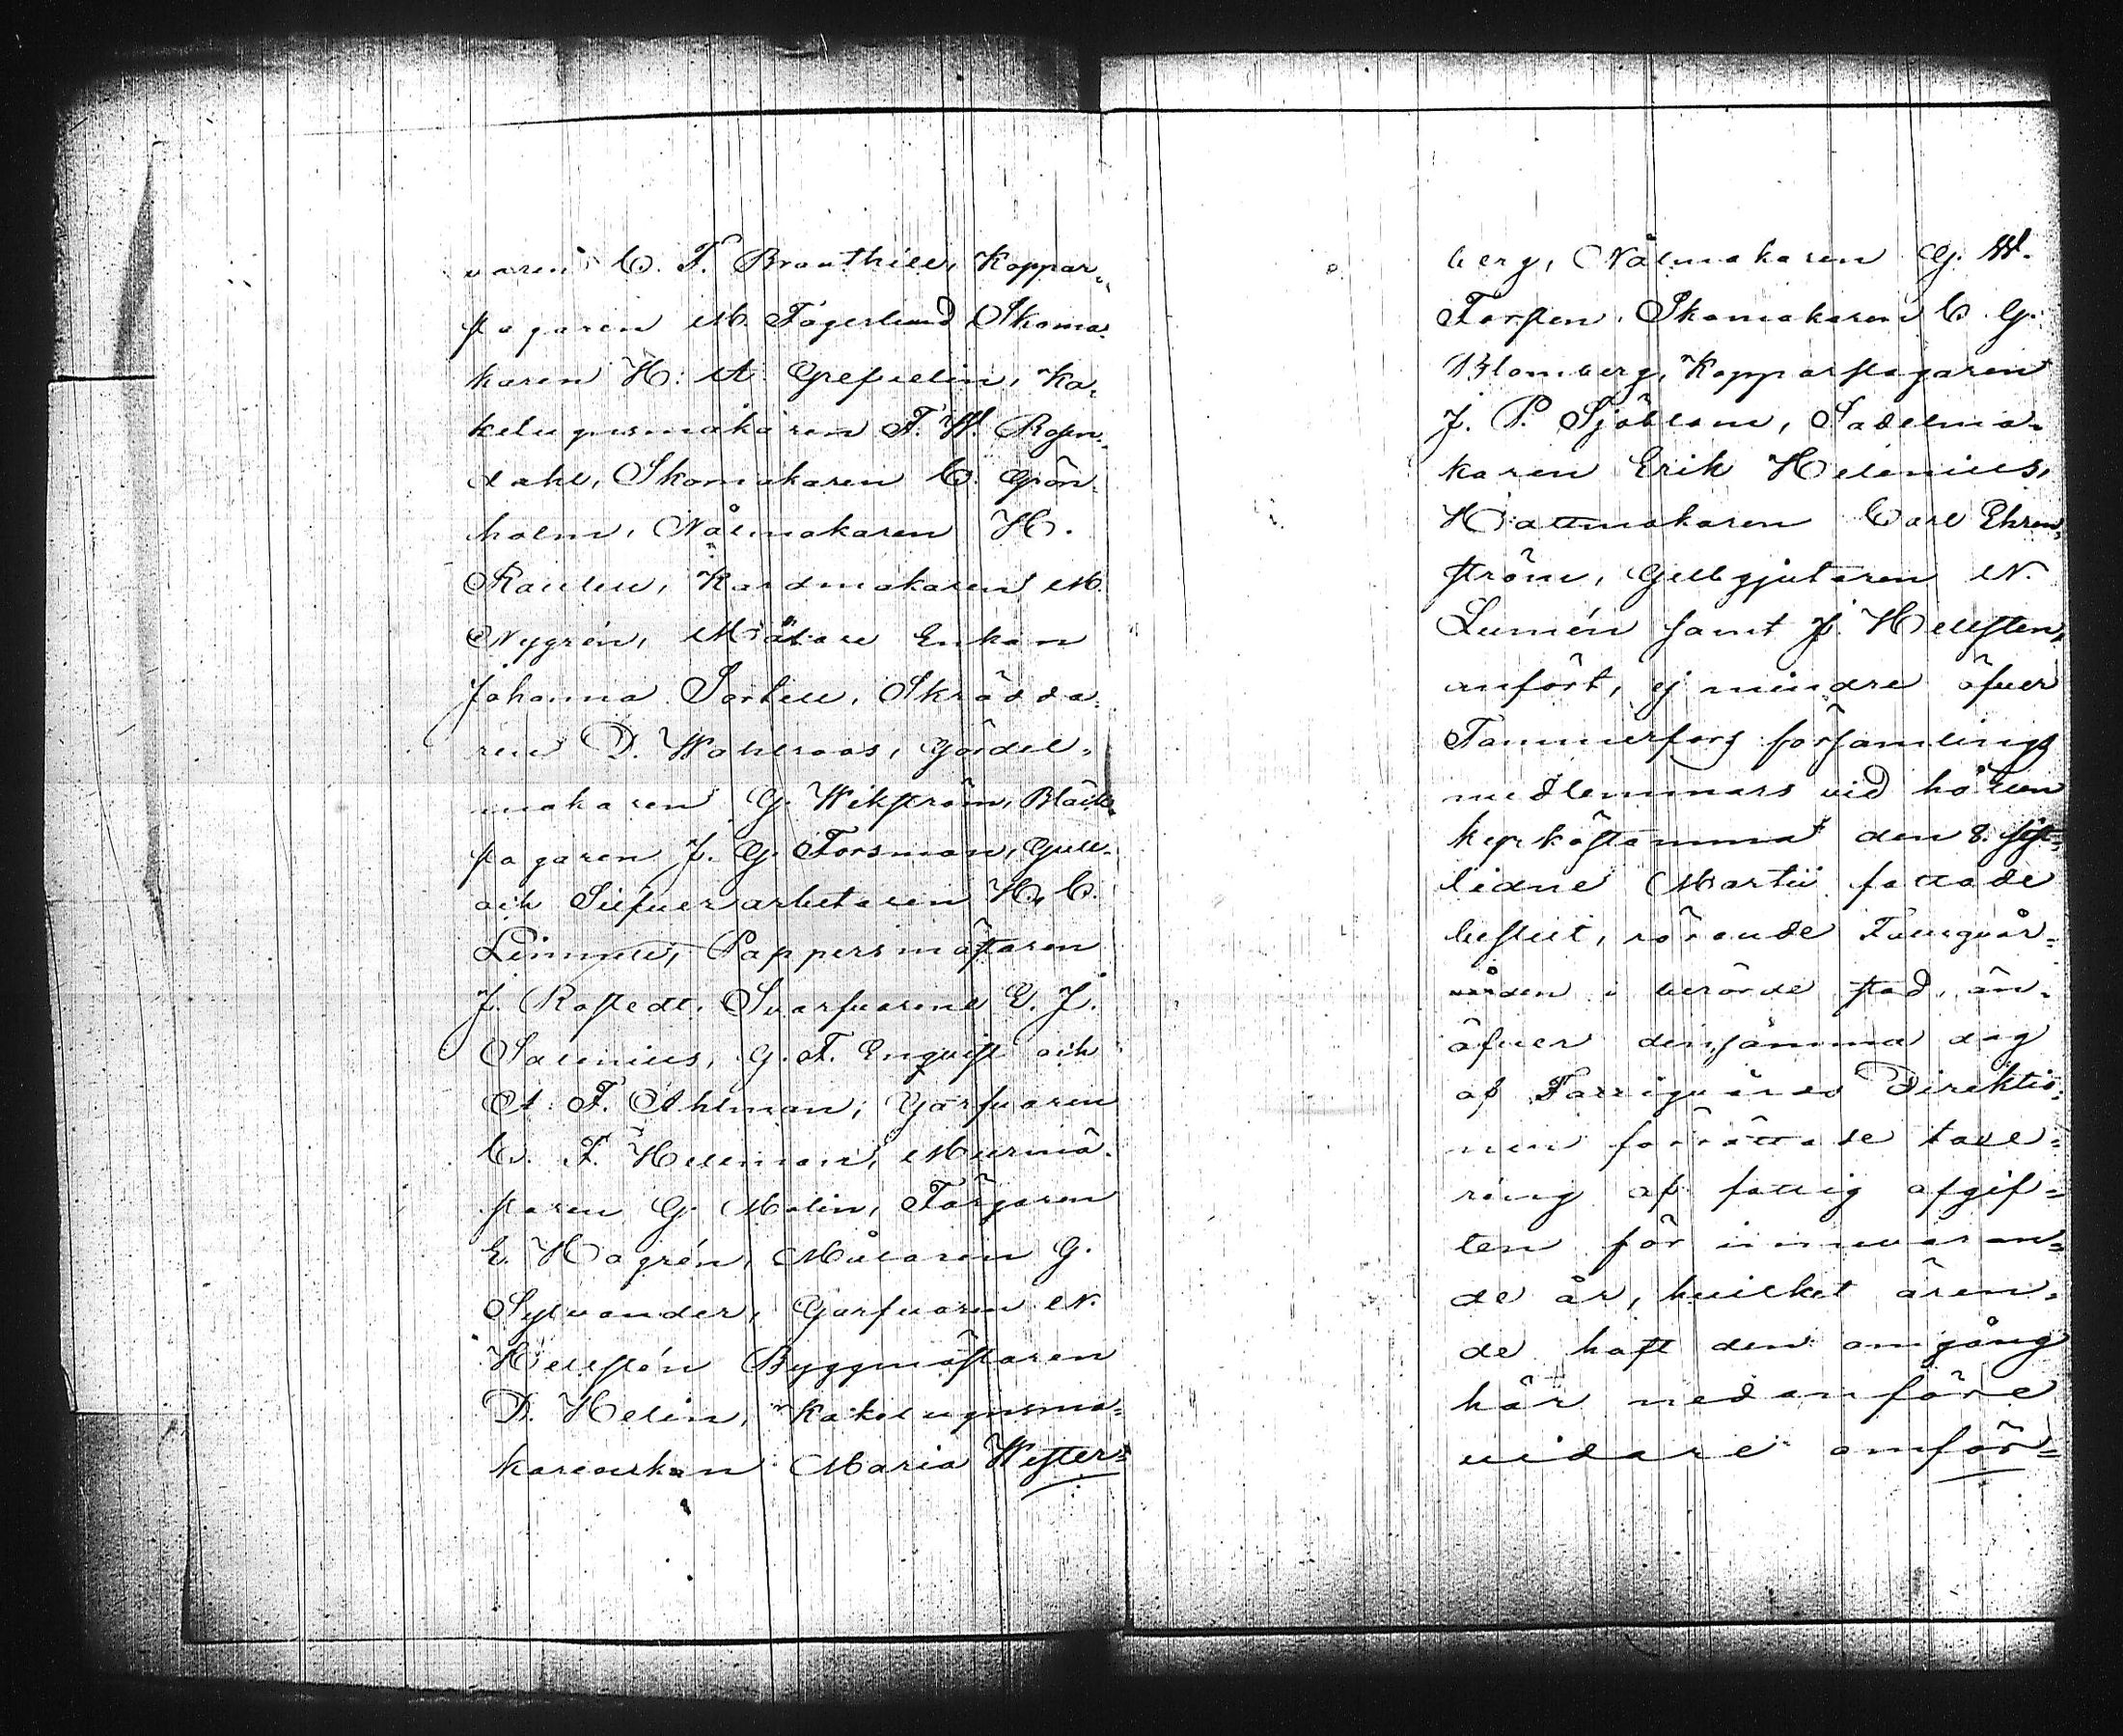 varen C. F. Branthill, Koppar-
slagaren M. Fagerlund Skoma-
karen H: A. Grefvelin, Ka-
kelugnsmakaren F. W. Rosen-
dahl, Skomakaren C. Grön-
holm, Nålmakaren H.
Raulin, Kardmakaren M.
Nygrén, Mätare Enkan
Johanna Sortell, Skrädda-
ren D. Wahlroos, Gördel-
makaren G. Wikström, Bläck-
slagaren J. G. Forsman, Gull-
och Silfverarbetaren H. C.
Limnell, Pappersmästaren
J. Rostedt, Svarfvarene E. J.
Salenius, G. F. Enqvist och
A. F. Ahlman, Garfvaren
C. F. Hellman, Murmä-
staren G. Malin, Färgaren
E. Hagrén, Målaren G.
Sylvander, Garfvaren N.
Hellstén Byggmästaren
D. Helin, Kakelugnsma-
kareenkan Maria Wester-
berg, Nålmakaren G. W.
Forsten, Skomakaren C. G.
Blomberg, Kopparslagaren
J. P. Sjöblom, Sadelma-
karen Erik Helenius,
Hattmakaren Carl Ehren-
ström, Gelbgjutaren N.
Lumén samt J. Hellsten,
anfört, ej mindre öfver
Tammerfors församlings
medlemmars vid hållen
kyrkostämma den 8. sist-
lidne Martii fattade
beslut, rörande Fattigvår-
den i berörde stad, än
öfver densamma dag
af Fattigvårds Direktio-
nen förrättade taxe-
ring af fattig afgif-
ten för innevaran-
de år, hvilket ären-
de haft den omgång
här nedanföre
vidare anför-